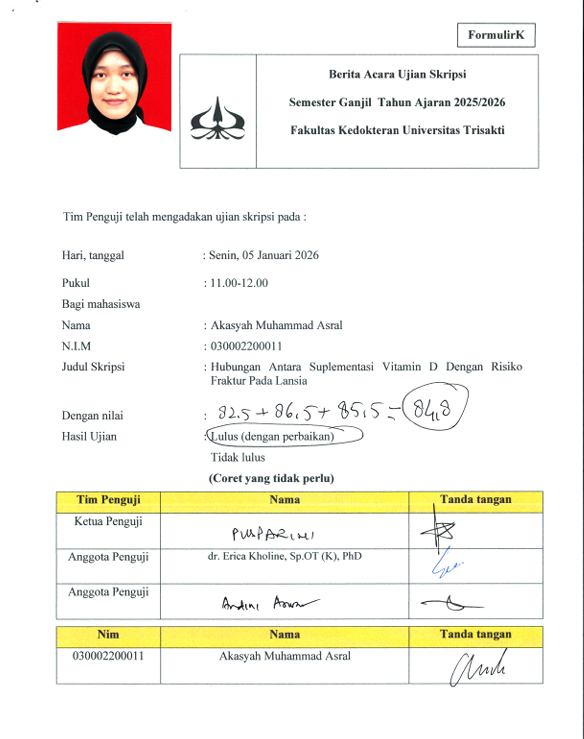 FormulirK
Berita Acara Ujian Skripsi
Semester Ganjil Tahun Ajaran 2025/2026
Fakultas Kedokteran Universitas Trisakti
Tim Penguji telah mengadakan ujian skripsi pada :
Hari, tanggal : Senin, 05 Januari 2026
Pukul : 11.00-12.00
Bagi mahasiswa
Nama : Akasyah Muhammad Asral
N.I.M : 030002200011
Judul Skripsi : Hubungan Antara Suplementasi Vitamin D Dengan Risiko
Fraktur Pada Lansia
Dengan nilai : 82.5 + 86,5 + 85,5 = 84,8
Hasil Ujian : Lulus (dengan perbaikan)
Tidak lulus
(Coret yang tidak perlu)
Tim Penguji Nama Tanda tangan
Ketua Penguji PUSPARINI
Anggota Penguji dr. Erica Kholine, Sp.OT (K), PhD
Anggota Penguji Andini
Nim Nama Tanda tangan
030002200011 Akasyah Muhammad Asral